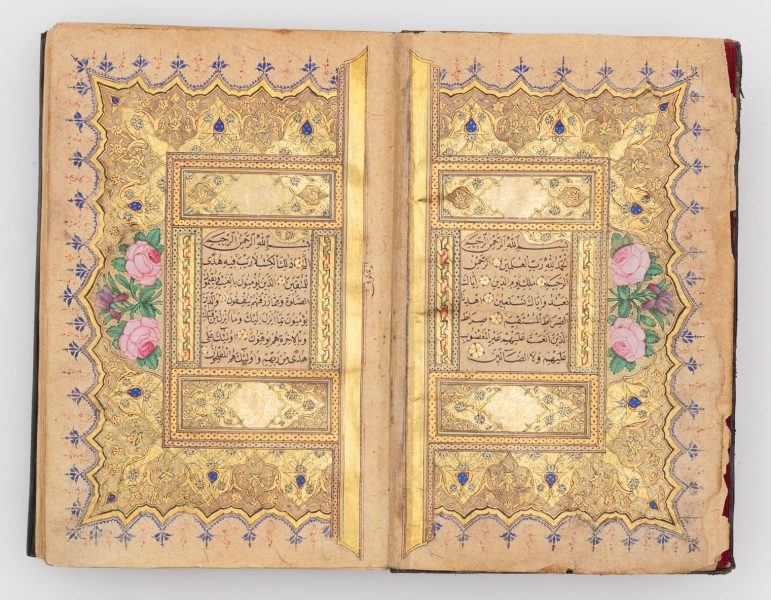 بسم الله الرحمن الرحيم
الحمد لله رب العلمين الرحمن
الرحيم ملك يوم الدين اياك
نعبد واياك نستعين اهدنا
الصراط المستقيم صراط
الذين انعمت عليهم غير المغضوب
عليهم ولا الضالين
بسم الله الرحمن الرحيم
الم ذلك الكتاب لا ريب فيه هدى
للمتقين الذين يؤمنون بالغيب ويقيمون
الصلوة ومما رزقناهم ينفقون والذين
يؤمنون بما انزل اليك وما انزل من قبلك
وبالاخرة هم يوقنون اولئك على
هدى من ربهم واولئك هم المفلحون